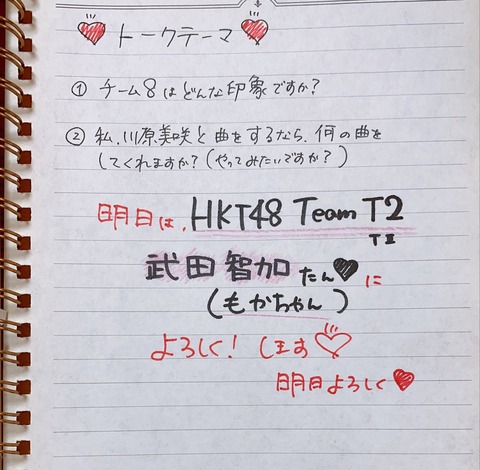 トークテーマ
① チーム8はどんな印象ですか?
② 私、川原美咲と曲をするなら、何の曲を
してくれますか?(やってみたいですか?)
明日は、HKT48 Team T2
TⅡ
武田智加たん♥に
(もかちゃん)
よろしく!します♡
明日よろしく♥